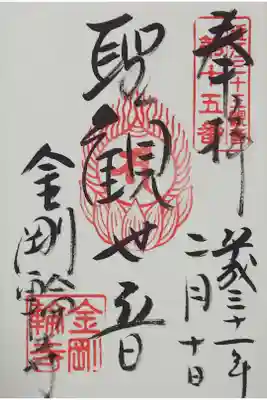 奉拝
第十五番
平成三十一年
二月十日
聖観世音
金剛輪寺
金剛
輪寺